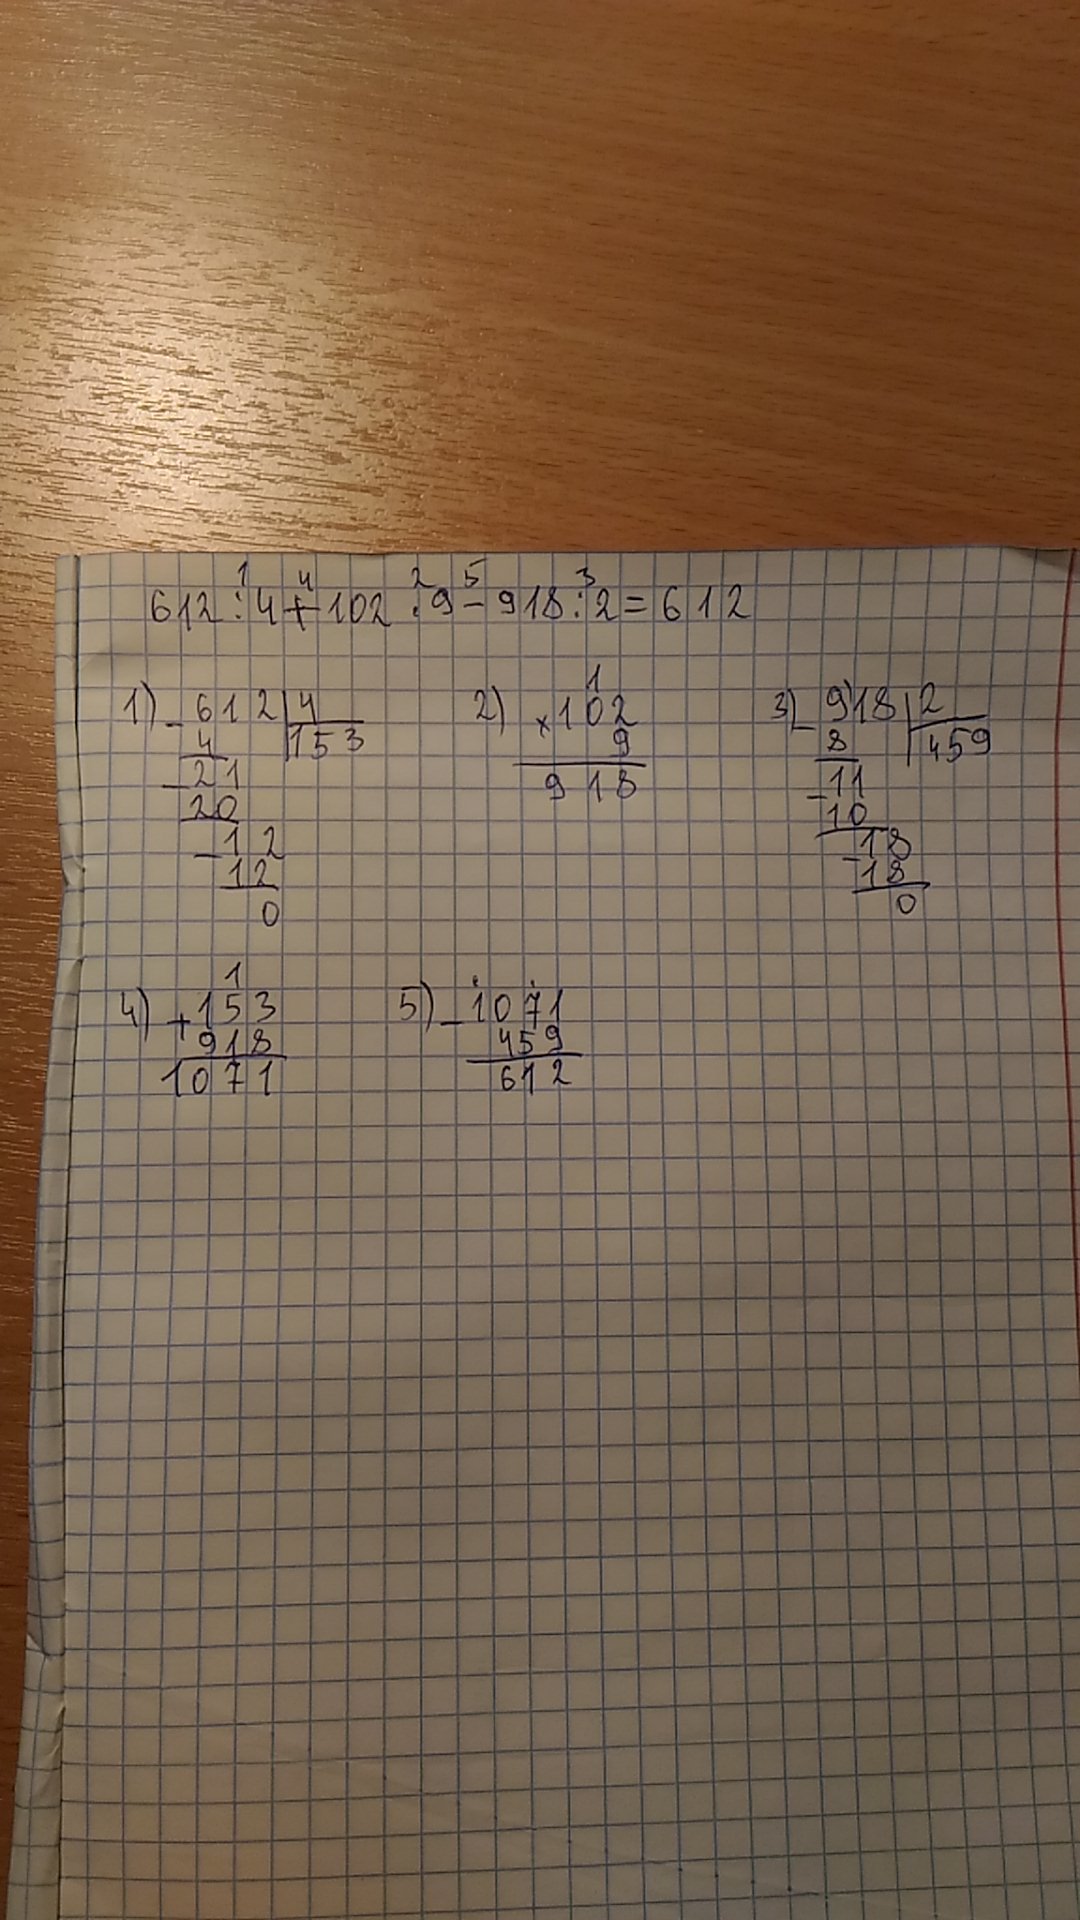 1 4 2 5 3
612 : 4 + 102 · 9 - 918 : 2 = 612
1
1) - 612 | 4 2) × 102 3) - 918 | 2
4 | 153 9 8 | 459
- 21 918 - 11
20 10
- 12 - 18
12 18
0 0
1
4) + 153 5) - 1071
918 459
1071 612